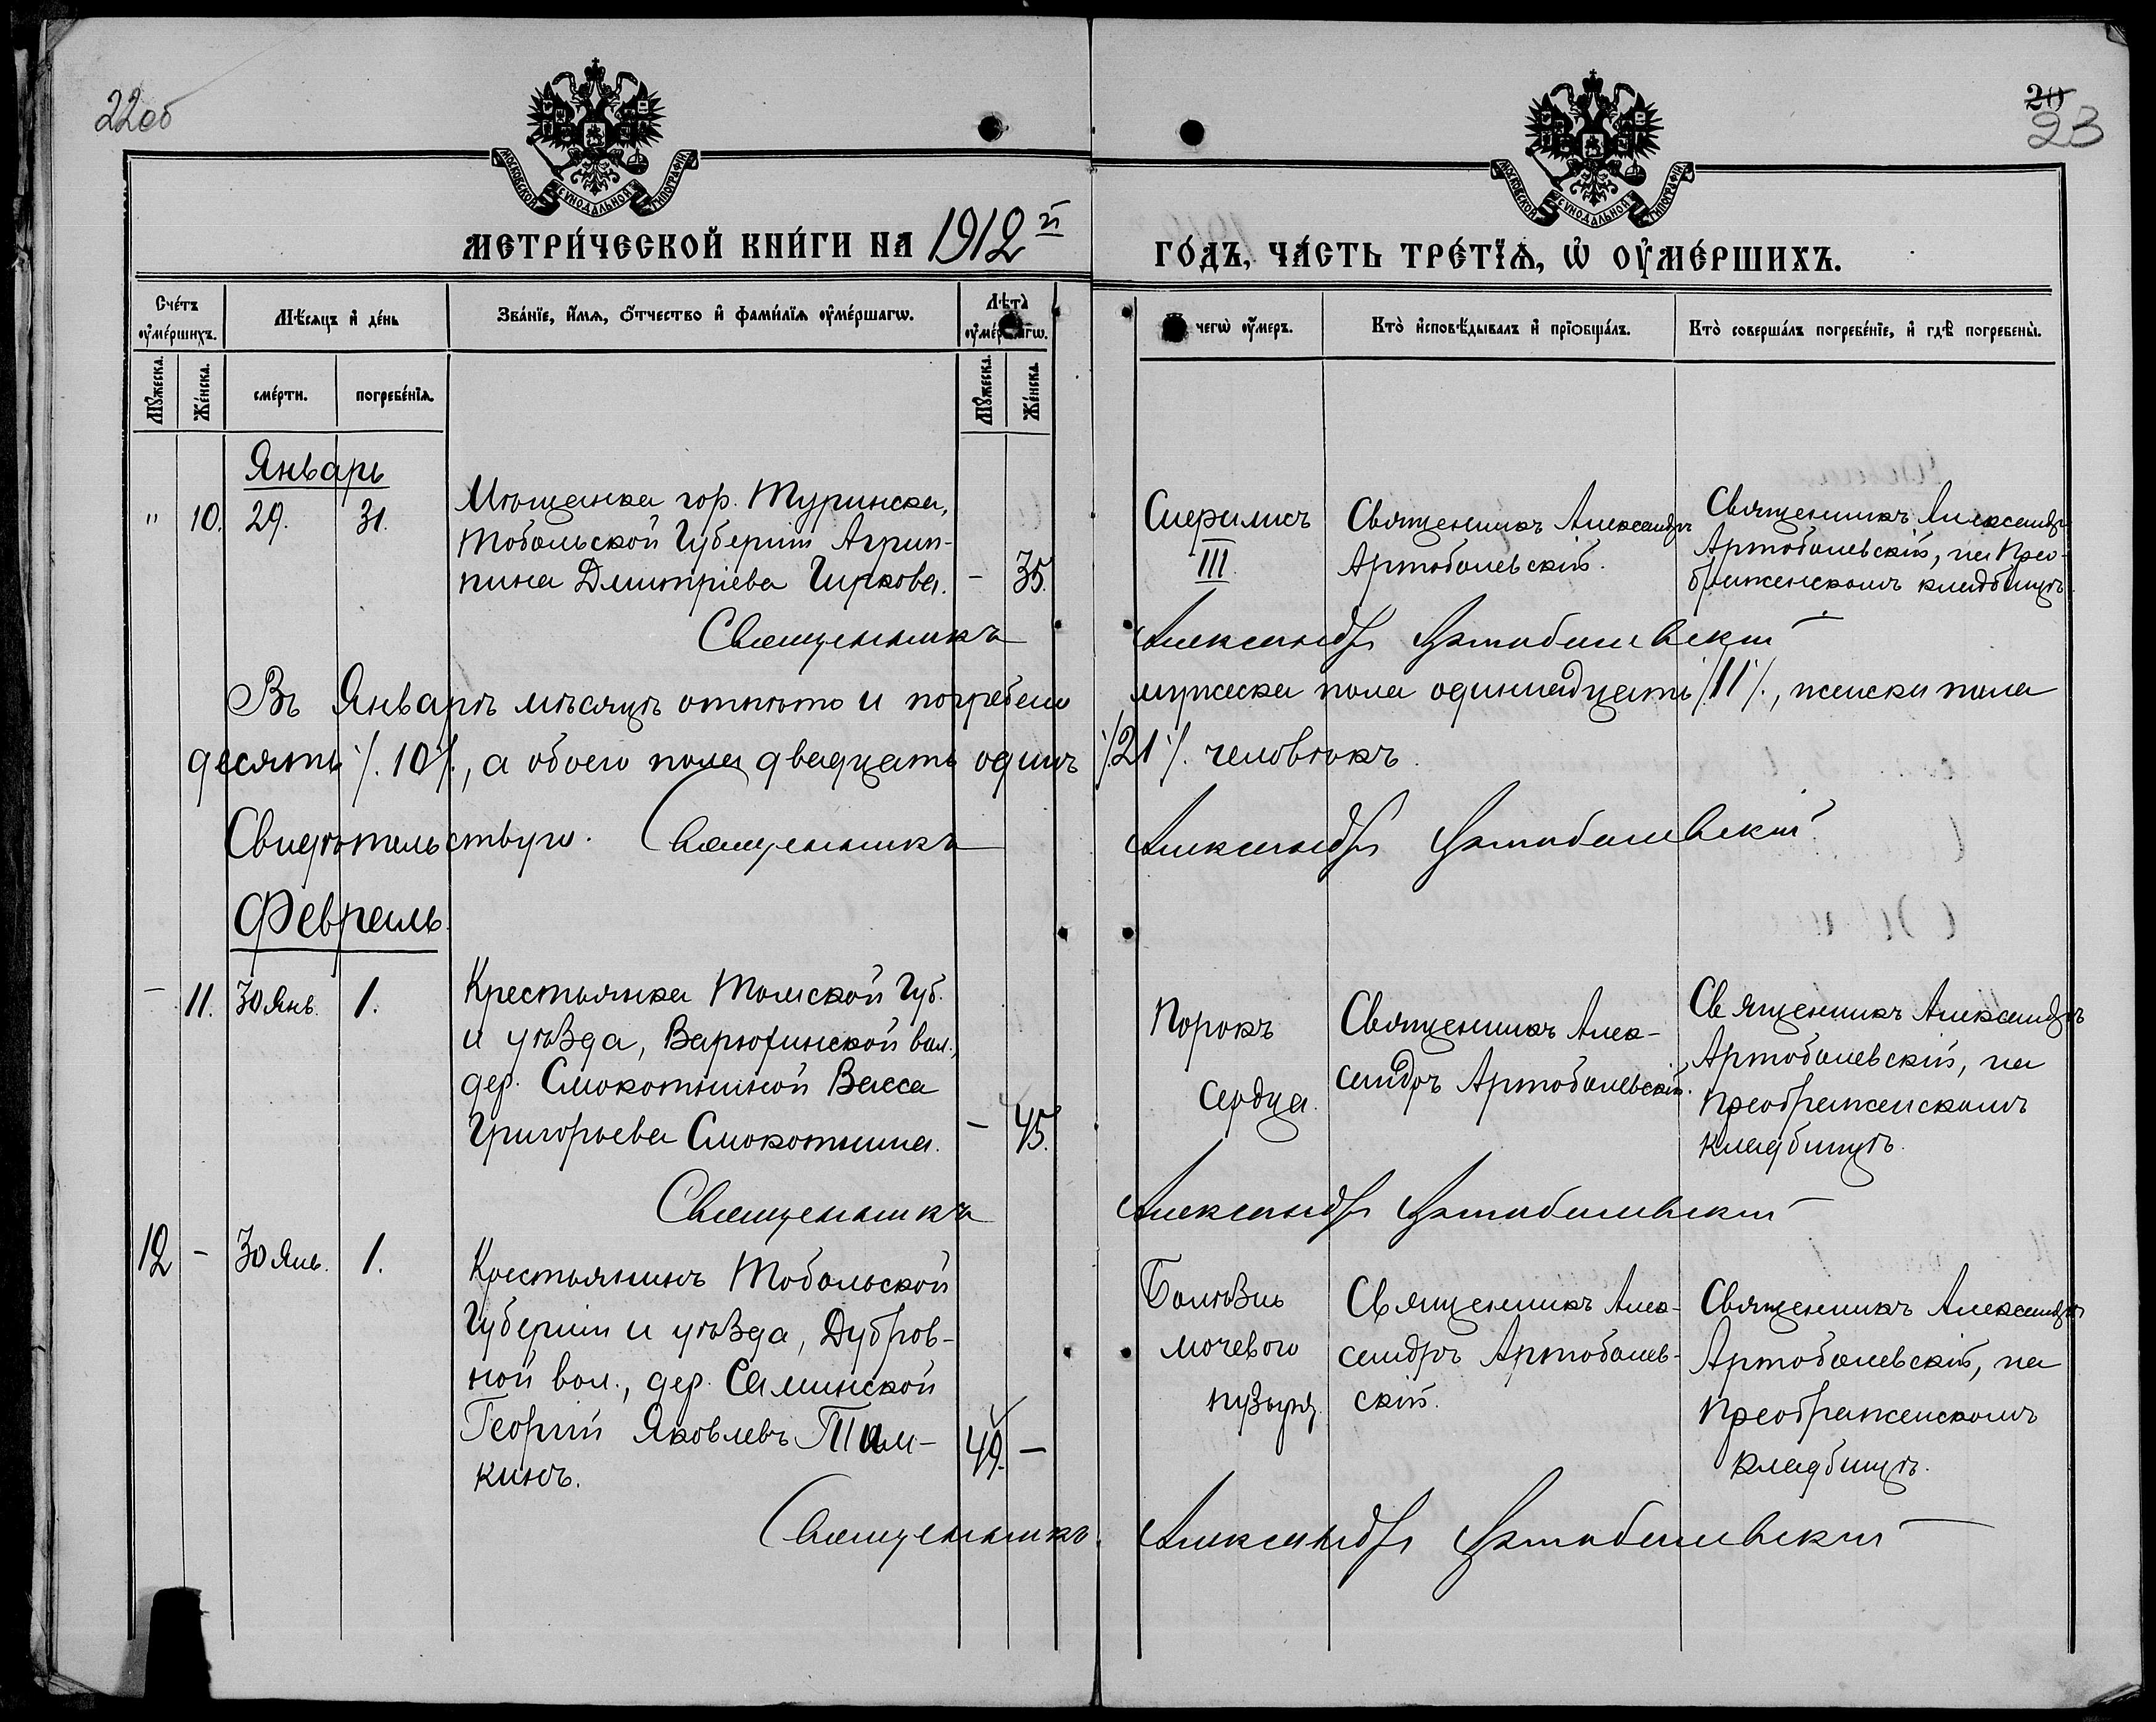 22об
20
23
МОСКОВСКОЙ СѴНОДАЛЬНОЙ ТИПОГРАФІИ.
МОСКОВСКОЙ СѴНОДАЛЬНОЙ ТИПОГРАФІИ.
МЕТРИ́ЧЕСКОЙ КНИ́ГИ НА 1912й
ГО́ДЪ, ЧА́СТЬ ТРЕ́ТЇѦ, Ѡ҆ ОУ҆МЕ́РШИХЪ.
Сче́тъ оу҆ме́ршихъ.
Мѣ́сяцъ и҆ де́нь
Зва́нїе, и҆́мя, ѻ҆́тчество и҆ фами́лїя оу҆ме́ршагѡ.
Лѣ́та
чегѡ̀ оу҆́меръ.
Кто̀ и҆сповѣ́дывалъ и҆ прїѡбща́лъ.
Кто̀ соверша́лъ погребе́нїе, и҆ гдѣ̀ погребены̀.
Мꙋ́жеска.
Же́нска.
сме́рти.
погребе́нїѧ.
Мꙋ́жеска.
Же́нска.
Январь
" 10. 29. 31.
Мѣщанка гор. Туринска,
Тобольской Губерніи Агрип-
пина Дмитріева Чиркова. - 35.
Сифилисъ
III.
Священникъ Александръ
Артоболевскій.
Священникъ Александръ
Артоболевскій, на Прео-
браженскомъ кладбищѣ.
Священникъ Александръ Артоболевскій
Въ Январѣ мѣсяцѣ отпѣто и погребено мужеска пола одиннадцать /11/., женска пола
десять /.10/., а обоего пола двадцать одинъ /21/. человѣкъ.
Свидѣтельствую. Священникъ Александръ Артоболевскій
Февраль.
- 11. 30 Янв. 1.
Крестьянка Томской Губ.
и уѣзда, Варюхинской вол.,
дер. Смокотиной Васса
Григорьева Смокотнина. - 45.
Порокъ
Сердца.
Священникъ Алек-
сандръ Артоболевскій.
Священникъ Александръ
Артоболевскій, на
Преображенскомъ
кладбищѣ.
Священникъ Александръ Артоболевскій
12 - 30 Янв. 1.
Крестьянинъ Тобольской
Губерніи и уѣзда, Дубров-
ной вол., дер. Саминской
Георгій Яковлевъ
кинъ. 49. -
Болѣзнь
мочевого
пузыря.
Священникъ Алек-
сандръ Артоболев-
скій.
Священникъ Александръ
Артоболевскій, на
Преображенскомъ
кладбищѣ.
Священникъ Александръ Артоболевскій